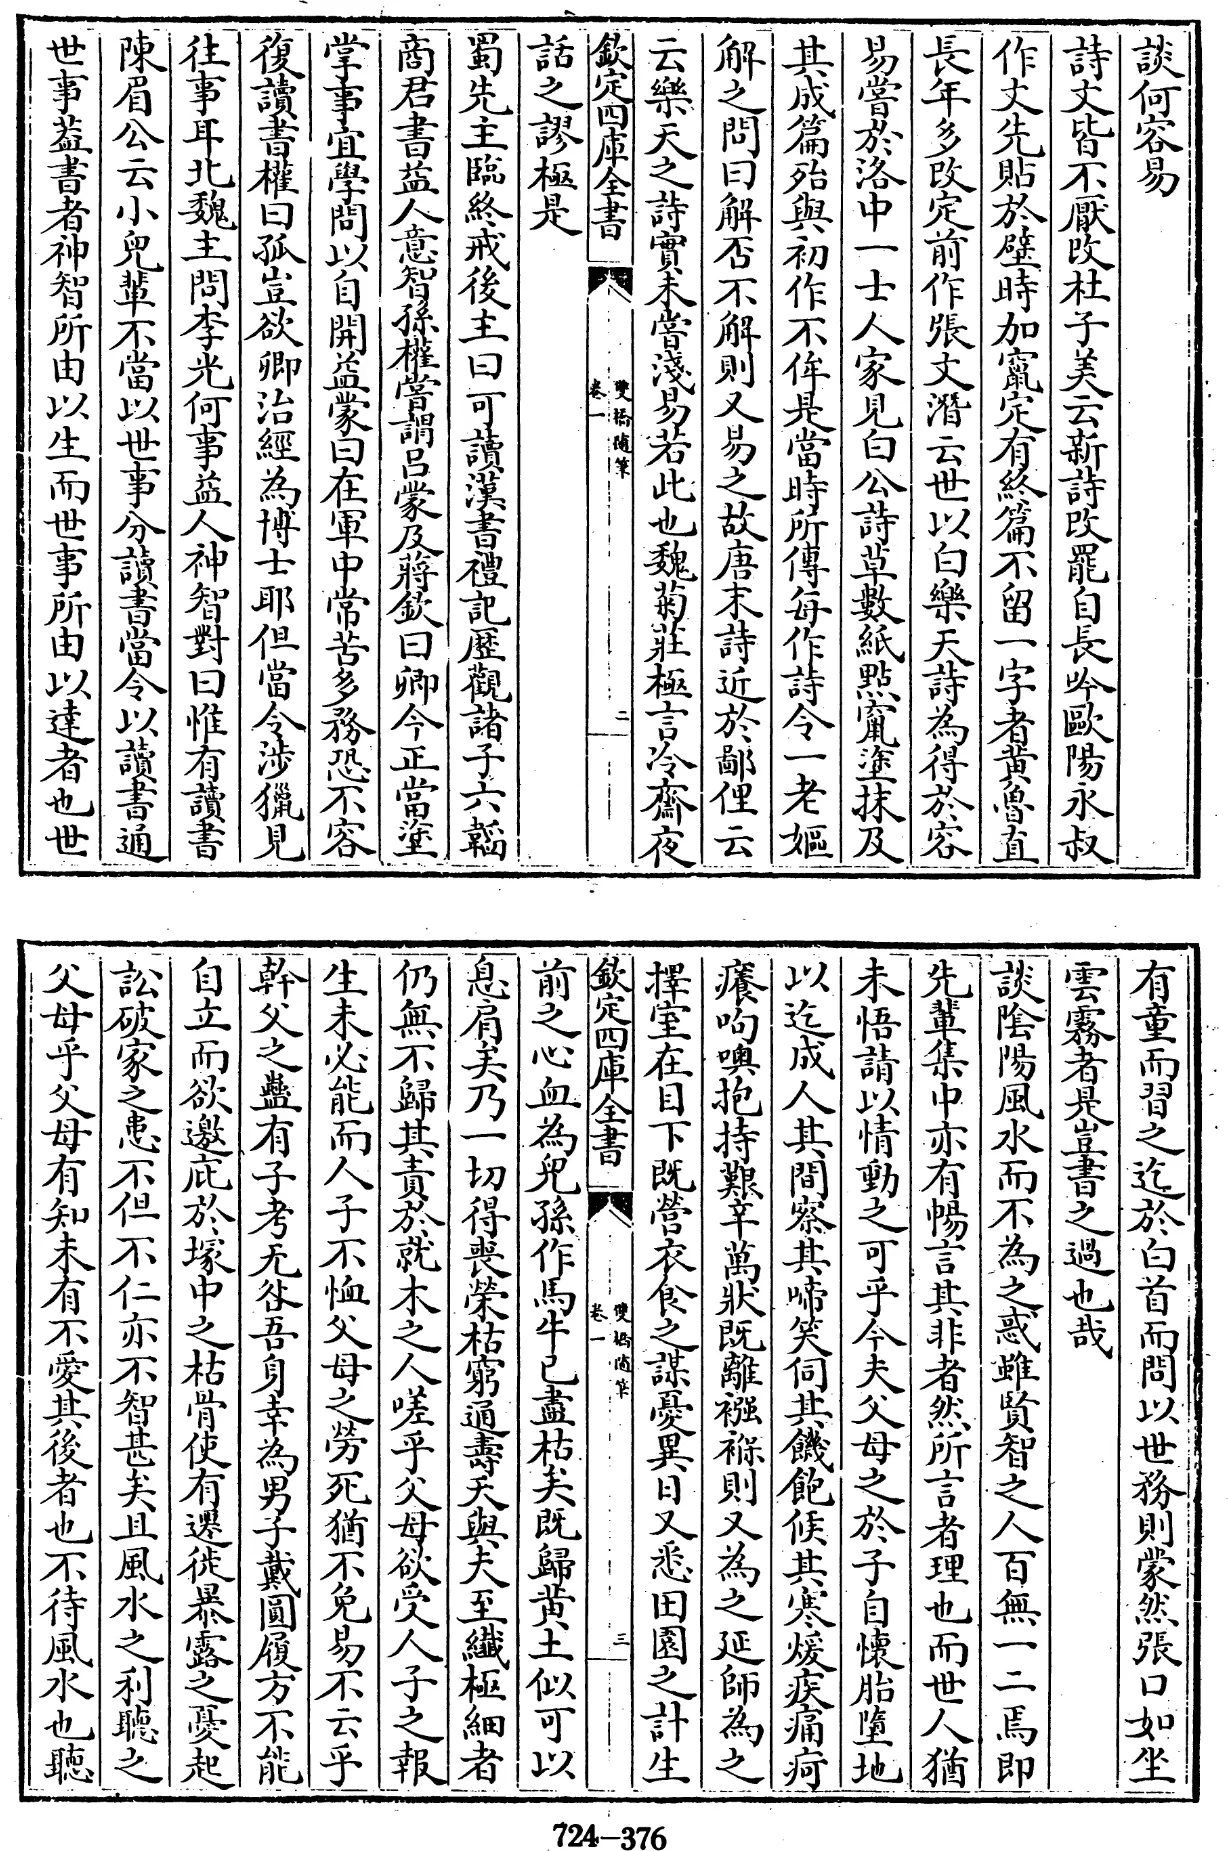 談何容易
詩文皆不厭改杜子美云新詩改罷自長吟歐陽永叔
作文先貼於壁時加竄定有終篇不留一字者黄魯直
長年多改定前作張文潛云世以白樂天詩為得於容
易嘗於洛中一士人家見白公詩草數紙點竄塗抹及
其成篇殆與初作不侔是當時所傳每作詩令一老嫗
解之問曰解否不解則又易之故唐末詩近於鄙俚云
云樂天之詩實未嘗淺易若此也魏菊莊極言冷齋夜
欽定四庫全書
雙橋隨筆
卷一
二
話之謬極是
蜀先主臨終戒後主曰可讀漢書禮記歷觀諸子六韜
商君書益人意智孫權嘗謂吕蒙及蔣欽曰卿今正當塗
掌事宜學問以自開益蒙曰在軍中常苦多務恐不容
復讀書權曰孤豈欲卿治經為博士耶但當令涉獵見
往事耳北魏主問李光何事益人神智對曰惟有讀書
陳眉公云小兒輩不當以世事分讀書當令以讀書通
世事益書者神智所由以生而世事所由以達者也世
有童而習之迄於白首而問以世務則蒙然張口如坐
雲霧者是豈書之過也哉
談陰陽風水而不為之惑雖賢智之人百無一二焉即
先輩集中亦有暢言其非者然所言者理也而世人猶
未悟請以情動之可乎今夫父母之於子自懷胎墮地
以迄成人其間察其啼笑伺其饑飽候其寒煖疾痛疴
癢呴噢抱持艱辛萬狀既離襁褓則又為之延師為之
擇室在目下既營衣食之謀憂異日又悉田園之計生
欽定四庫全書
雙橋隨筆
卷一
三
前之心血為兒孫作馬牛已盡枯矣既歸黄土似可以
息肩矣乃一切得喪榮枯窮通壽夭與夫至纎極細者
仍無不歸其責於就木之人嗟乎父母欲受人子之報
生未必能而人子不恤父母之勞死猶不免易不云乎
幹父之蠱有子考无咎吾身幸為男子戴圓履方不能
自立而欲邀庇於塚中之枯骨使有遷徙暴露之憂起
訟破家之患不但不仁亦不智甚矣且風水之利聽之
父母乎父母有知未有不愛其後者也不待風水也聽
724-376